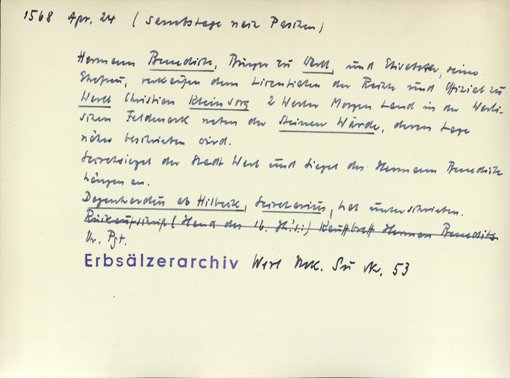 1568 Apr. 24 (Samstags nach Paschen)
Hermann Benedickt, Bürger zu Werl, und Elisabeth, seine
Ehefrau, verkaufen dem Licentiaten der Rechte und Offizial zu
Werl Christian Kleinsorg 2 Werler Morgen Land in der Werli-
schen Feldmark neben der Steiner Wärde, deren Lage
näher beschrieben wird.
Secretsiegel der Stadt Werl und Siegel des Hermann Benedickt
hängen an.
Degenhardus ab Hilbeck, Secretarius, hat unterschrieben.
Rückaufschrift (Hand des 16. Jh.s:) Kauffbreff Herman Benedickts
Or. Pgt.
Erbsälzerarchiv Werl Urk. Nr. 53